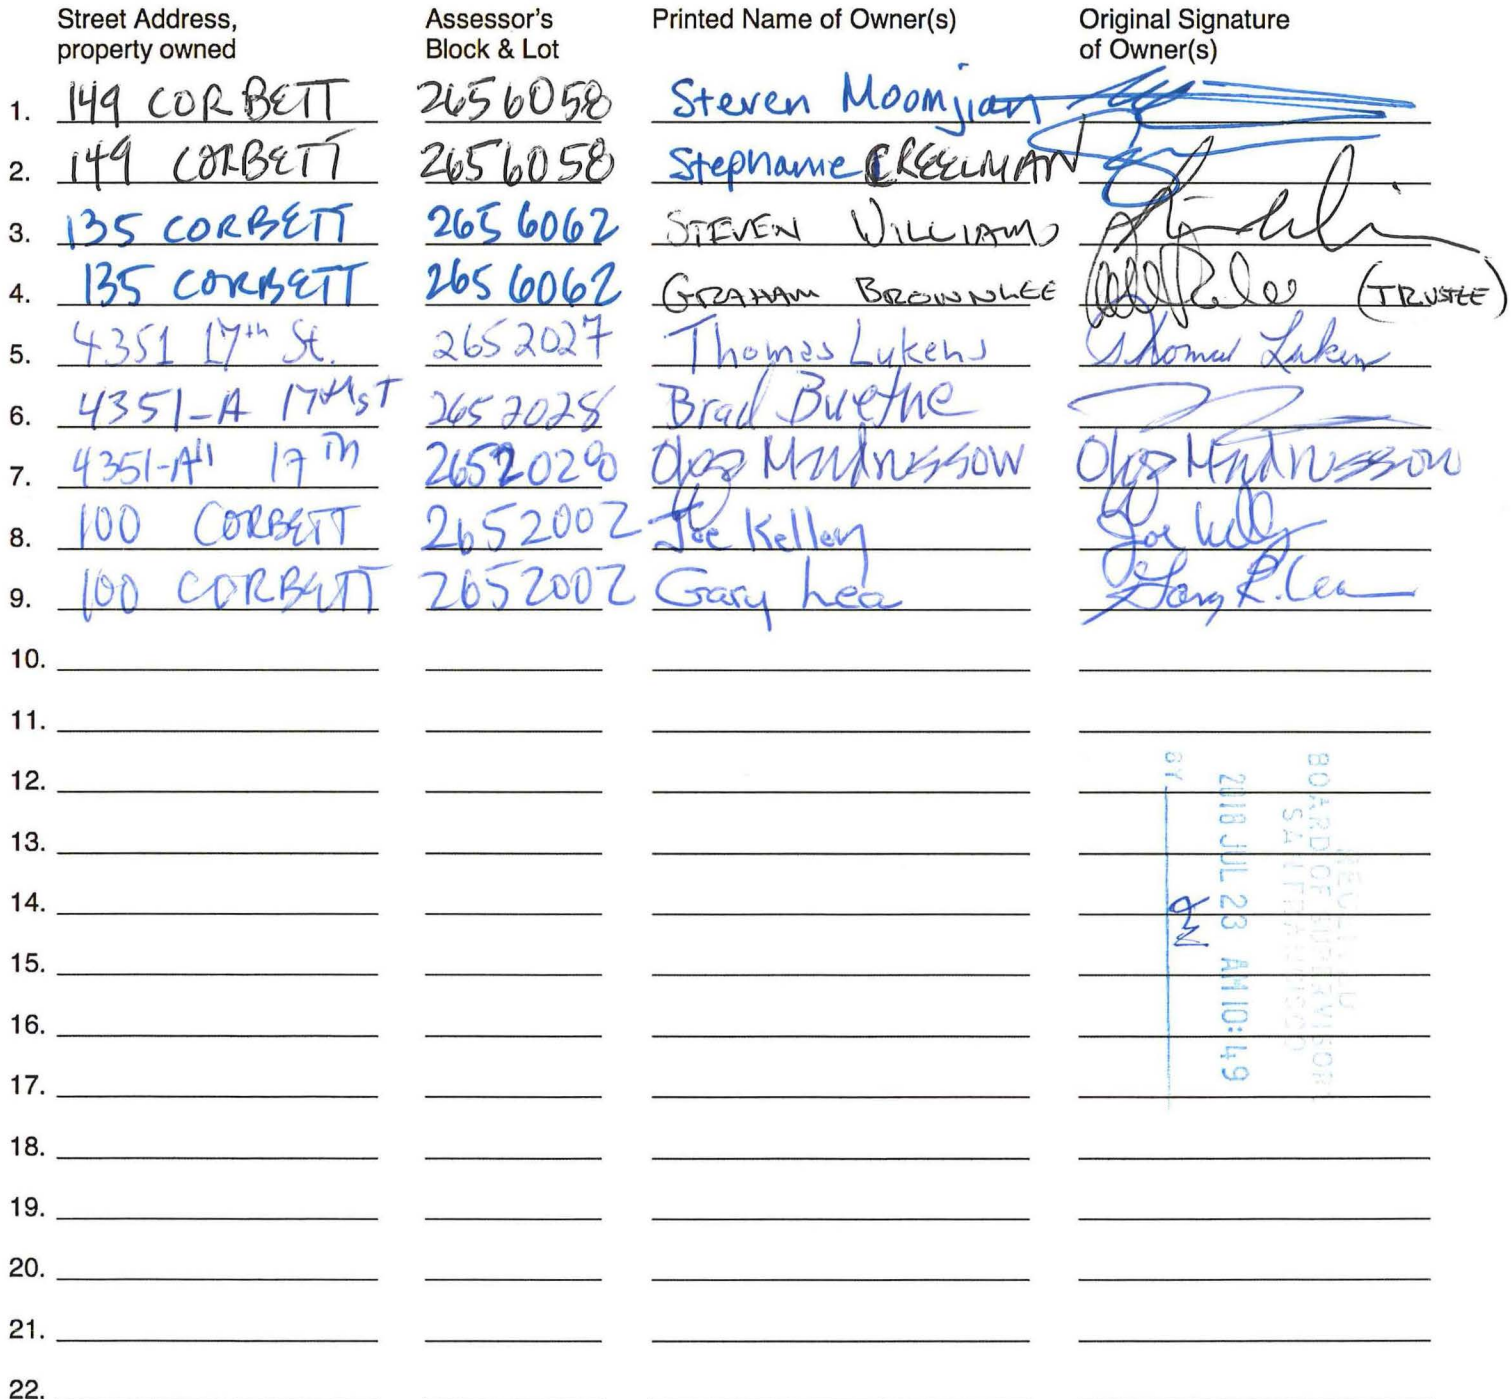 Street Address, property owned Assessor's Block & Lot Printed Name of Owner(s) Original Signature of Owner(s)
1. 149 CORBETT 2656058 Steven Moomjian
2. 149 CORBETT 2656058 Stephanie CREELMAN
3. 135 CORBETT 2656062 STEVEN WILLIAMS
4. 135 CORBETT 2656062 GRAHAM BROWNLEE (TRUSTEE)
5. 4351 17th St. 2652027 Thomas Lukens Thomas Lukens
6. 4351-A 17th ST 2652028 Brad Buethe
7. 4351-A 17th 2652028
8. 100 CORBETT 2652002 Joe Kelley Joe Kelley
9. 100 CORBETT 2652002 Gary Lea Gary R. Lea
10.
11.
12.
13.
14.
15.
16.
17.
18.
19.
20.
21.
22.
RECEIVED
BOARD OF SUPERVISOR
SAN FRANCISCO
2018 JUL 23 AM 10:49
BY